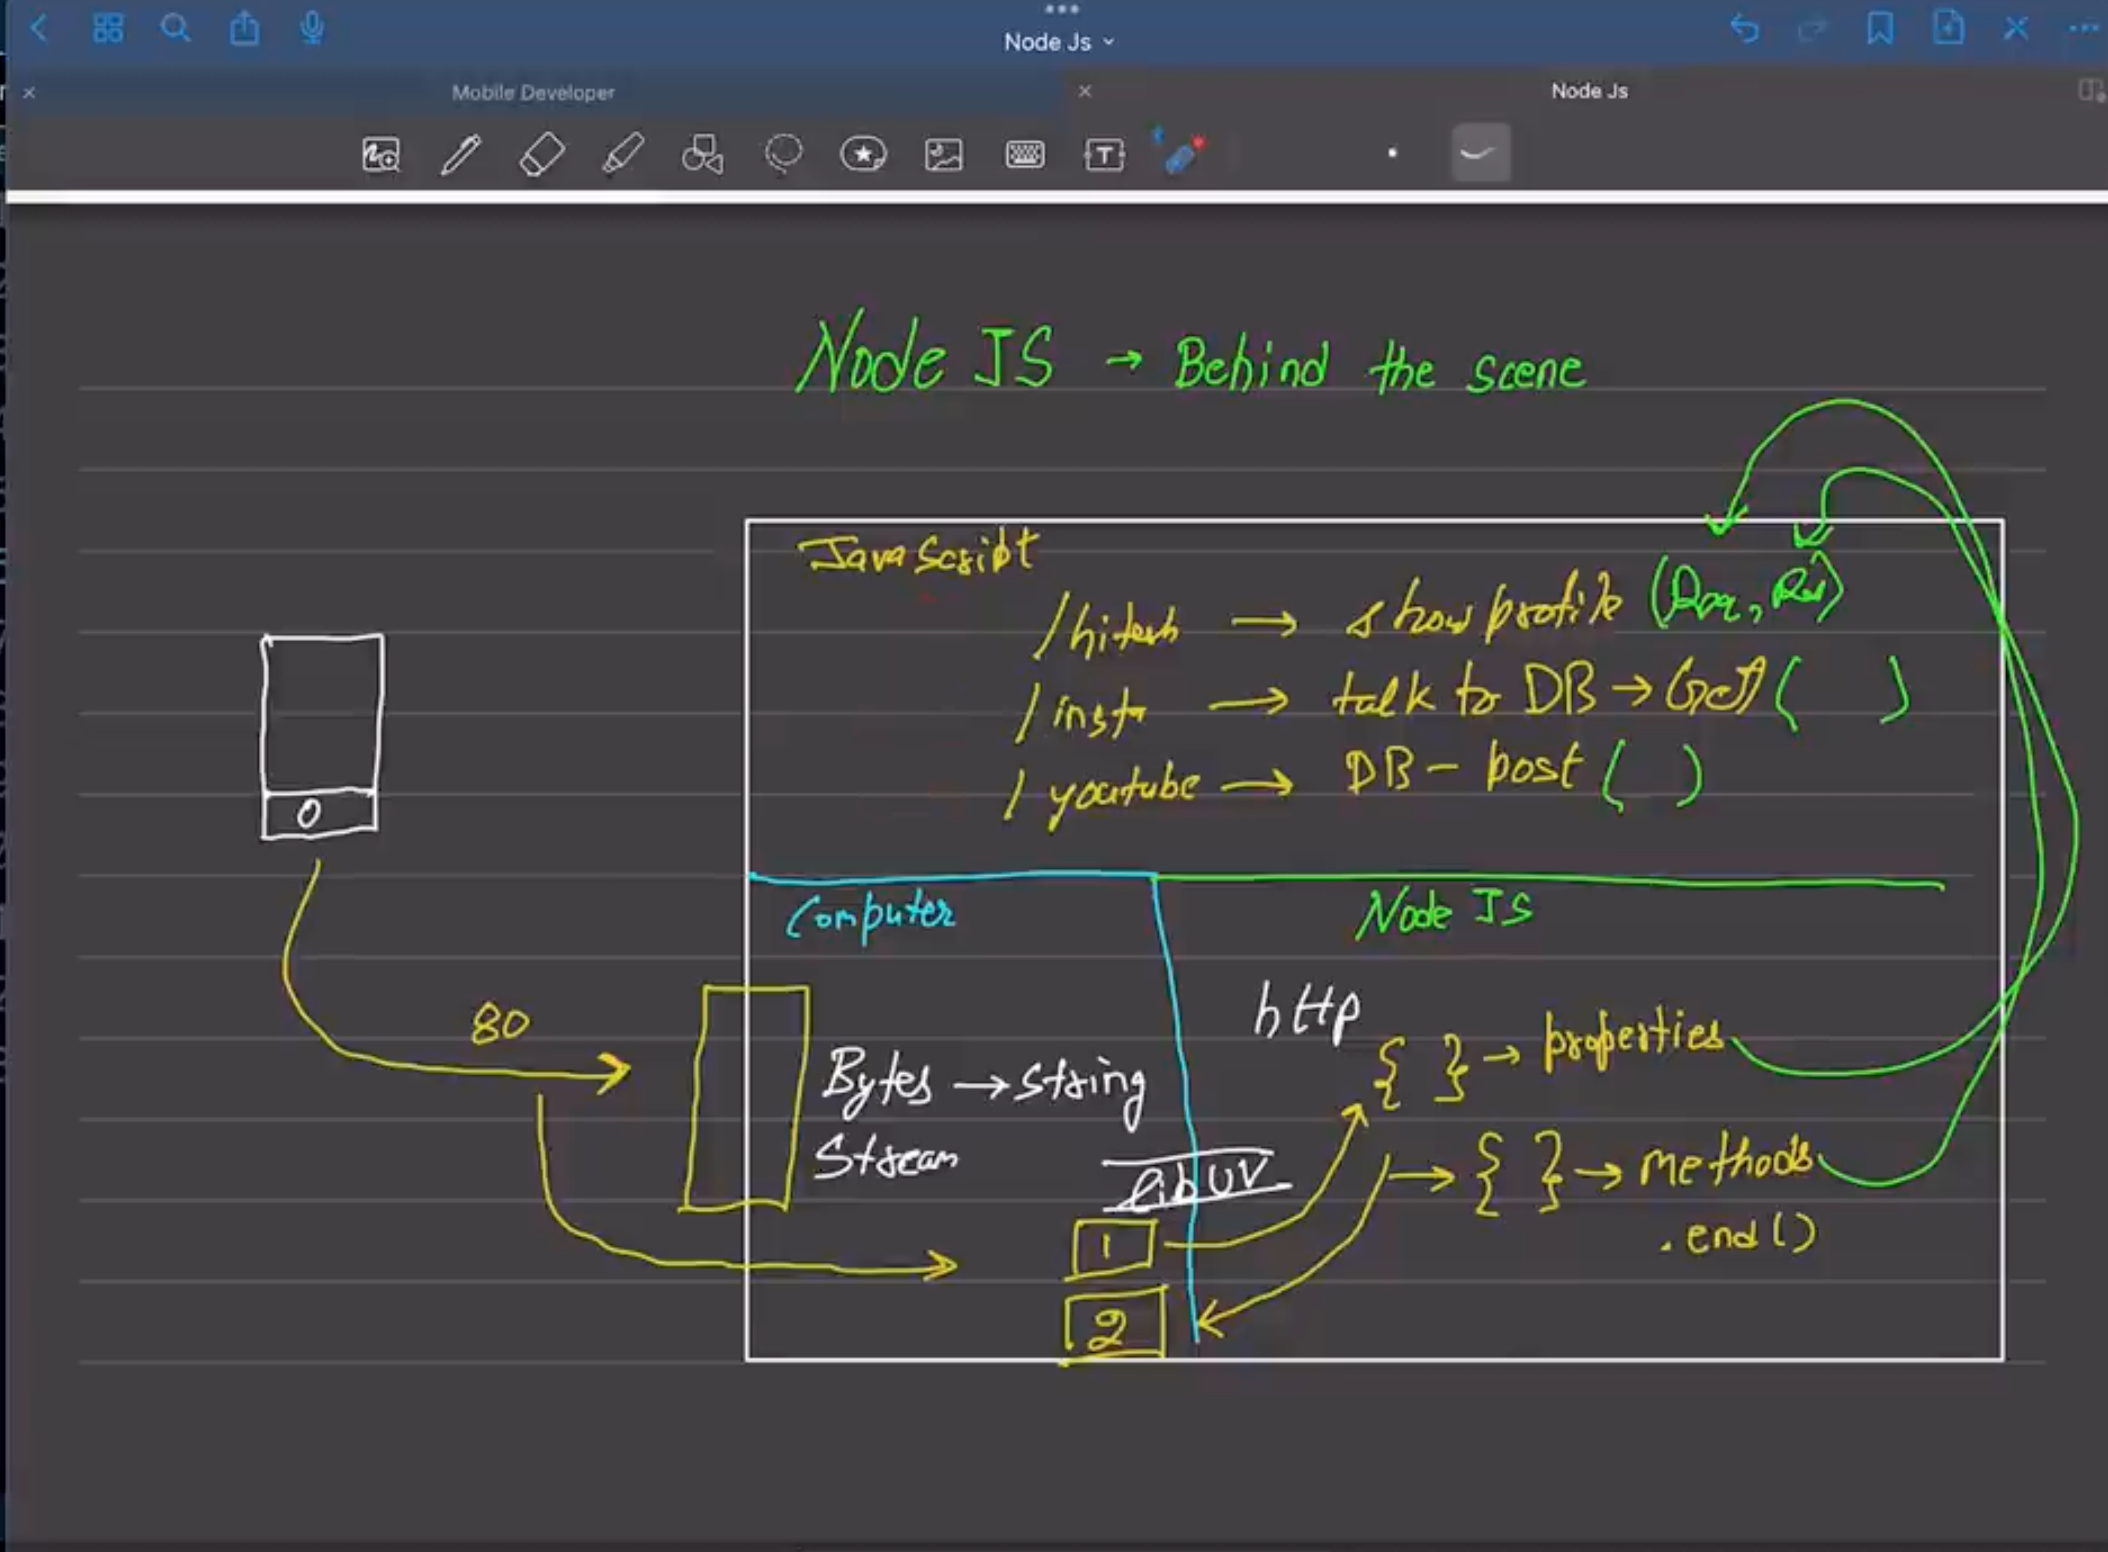 Node Js
Mobile Developer
Node Js
T
Node JS → Behind the scene
JavaScript
/hitesh → show profile (Req, Res)
/insta → talk to DB → Get ( )
/youtube → DB - post ( )
Computer
Node JS
0
80
http
{ } → properties
Bytes → string
Stream
lib UV
→ { } → methods
.end()
1
2